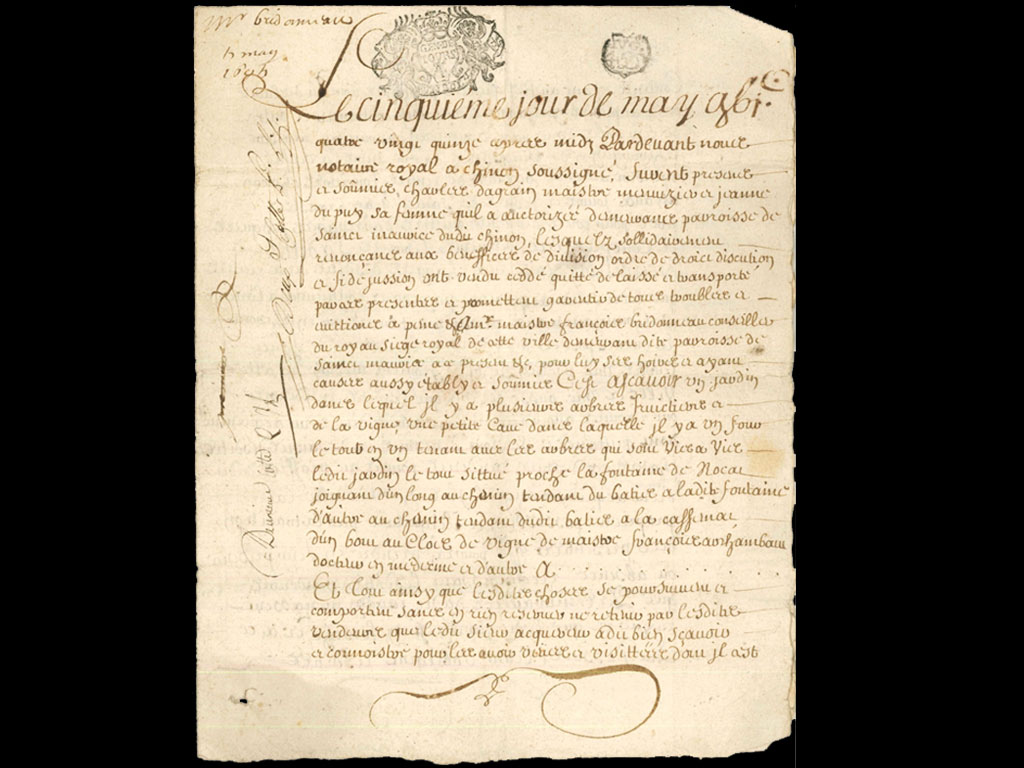 Mr bridonneau
5 may
1695
Le cinquiéme jour de may gbic
quatre vingt quinze apres midy Pardevant nous
notaire royal a chinon soussigné, furent presens
et soumis, charles dagrain maistre menuizier et jeanne
du puy sa femme quil a auctorizée demeurans parroisse de
saint maurice dudit chinon, lesquelz sollidairement
renonçans aux beneffices de division ordre de droict discution
et fidéjussion ont vendu ceddé quitté delaissé et transporté
par ces presentes et promettent garentir de tous troubles et
evictions a peine &c a mr maistre françois bridonneau conseiller
du roy au siege royal de cette ville demeurant dite parroisse de
saint maurice a ce present &c, pour luy ses hoirs et ayans
causes aussy estably et soumis C'est ascavoir un jardin
dans lequel jl y a plusieurs arbres fruictiers et
de la vigne, une petite cave dans laquelle jl y a un four
le tout en un tenant avec les arbres qui sont vis a vis
ledit jardin le tout sittué proche la fontaine de
joignant d'un long au chemin tendant du batis a ladite fontaine
d'autre au chemin tendant dudit batis a la
d'un bout au Clos de vigne de maistre françois archambau
docteur en medecine et d'autre A
Et tout ainsy que lesdites choses se poursuivent et
comportent sans en rien reserver ne retenir par lesdits
vendeurs que ledit sieur acquereur a dit bien sçavoir
et connoistre pour les avoir veues et visittées dont jl est